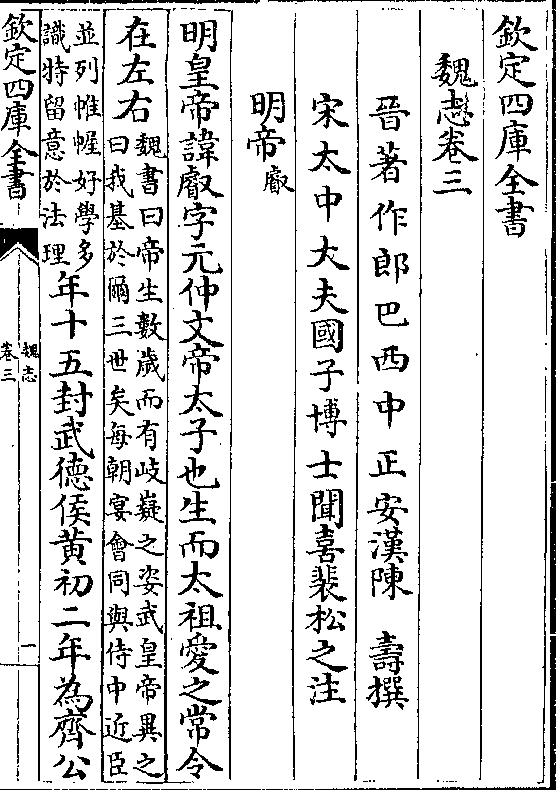 欽定四庫全書
魏志卷三
晉著作郎巴西中正安漢陳 壽撰
宋太中大夫國子博士聞喜裴松之注
明帝叡
明皇帝諱叡字元仲文帝太子也生而太祖愛之常令
在左右
魏書曰帝生數歲而有岐嶷之姿武皇帝異之
曰我基於爾三世矣每朝宴會同與侍中近臣
並列帷幄好學多
識特留意於法理
年十五封武德侯黄初二年為齊公
欽定四庫全書
魏志
卷三
一